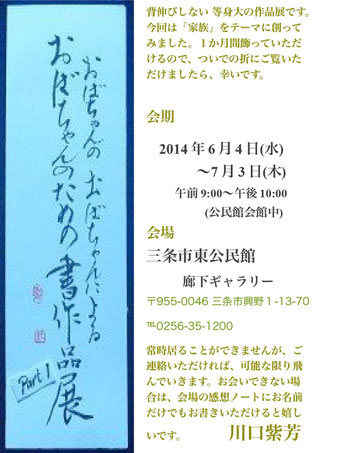 おばちゃんの おばちゃんによる
おばちゃんのための 書作品展
Part 1
背伸びしない 等身大の作品展です。
今回は「家族」をテーマに創って
みました。１か月間飾っていただ
けるので、ついでの折にご覧いた
だけましたら、幸いです。
会期
2014 年 6 月 4 日(水)
～7 月 3 日(木)
午前 9:00～午後 10:00
(公民館会館中)
会場
三条市東公民館
廊下ギャラリー
〒955-0046 三条市興野１-13-70
℡0256-35-1200
常時居ることができませんが、ご
連絡いただければ、可能な限り飛
んでいきます。お会いできない場
合は、会場の感想ノートにお名前
だけでもお書きいただけると嬉し
いです。 川口紫芳